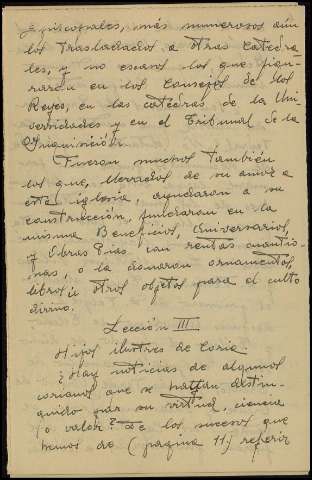 Episcopales, más numerosos aún
los trasladados a otras catedra-
les, y no escasos los que figu-
raron en los Consejos de los
Reyes, en las cátedras de la Uni-
versidades y en el Tribunal de la
Inquisición.
Fueron muchos también
los que, llevados de su amor a
esta iglesia, ayudaron a su
construcción, fundaron en la
misma Beneficios, Aniversarios,
y Obras Pías con rentas cuantio-
sas, o la donaron ornamentos,
libros u otros objetos para el culto
divino.
Lección III
Hijos ilustres de Coria.
¿Hay noticias de algunos
corianos que se hayan distin-
guido por su virtud, ciencia
o valor? De los sucesos que
hemos de (pagina 11) referir